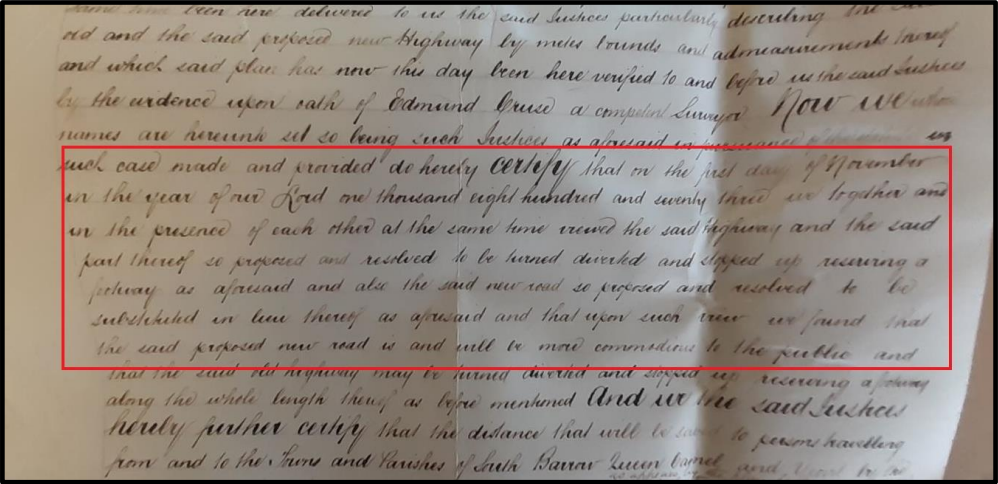 same have been here delivered to us the said Justices particularly describing the said
old and the said proposed new Highway by metes bounds and admeasurements thereof
and which said plan has now this day been here verified to and before us the said Justices
by the evidence upon oath of Edmund Cruse a competent Surveyor Now we whose
names are hereunto set so being such Justices as aforesaid in pursuance of in
such case made and provided do hereby certify that on the first day of November
in the year of our Lord one thousand eight hundred and twenty three we together and
in the presence of each other at the same time viewed the said Highway and the said
part thereof so proposed and resolved to be turned diverted and stopped up reserving a
footway as aforesaid and also the said new road so proposed and resolved to be
substituted in lieu thereof as aforesaid and that upon such view we found that
the said proposed new road is and will be more commodious to the public and
that the said old highway may be turned diverted and stopped up reserving a footway
along the whole length thereof as before mentioned And we the said Justices
hereby further certify that the distance that will be saved to persons travelling
from and to the Towns and Parishes of South Barrow Queen Camel and